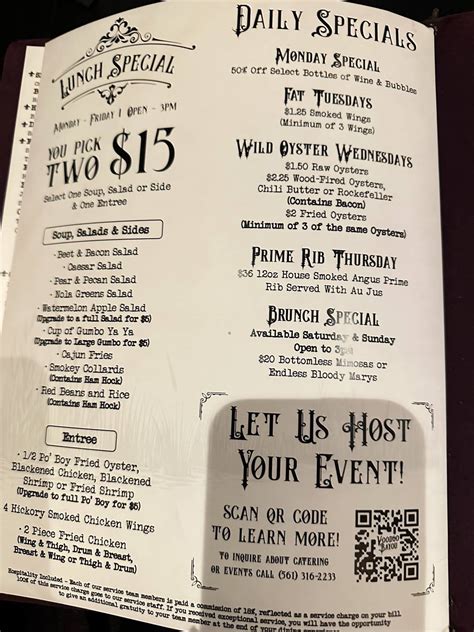 Lunch Special
Monday - Friday | Open - 3PM
You Pick
Two $15
Select One Soup, Salad or Side
& One Entree
Soup, Salads & Sides
· Beet & Bacon Salad
· Caesar Salad
· Pear & Pecan Salad
· Nola Greens Salad
· Watermelon Apple Salad
(Upgrade to a full Salad for $5)
· Cup of Gumbo Ya Ya
(Upgrade to Large Gumbo for $5)
· Cajun Fries
· Smokey Collards
(Contains Ham Hock)
· Red Beans and Rice
(Contains Ham Hock)
Entree
· 1/2 Po' Boy Fried Oyster,
Blackened Chicken, Blackened
Shrimp or Fried Shrimp
(Upgrade to full Po' Boy for $5)
4 Hickory Smoked Chicken Wings
· 2 Piece Fried Chicken
(Wing & Thigh, Drum & Breast,
Breast & Wing or Thigh & Drum)
Daily Specials
Monday Special
50% Off Select Bottles of Wine & Bubbles
Fat Tuesdays
$1.25 Smoked Wings
(Minimum of 3 Wings)
Wild Oyster Wednesdays
$1.50 Raw Oysters
$2.25 Wood-Fired Oysters,
Chili Butter or Rockefeller
(Contains Bacon)
$2 Fried Oysters
(Minimum of 3 of the same Oysters)
Prime Rib Thursday
$36 12oz House Smoked Angus Prime
Rib Served With Au Jus
Brunch Special
Available Saturday & Sunday
Open to 3pm
$20 Bottomless Mimosas or
Endless Bloody Marys
Let Us Host
Your Event!
Scan QR Code
To Learn More!
To Inquire About Catering
or Events Call (561) 316-2233
Voodoo
Bayou
Hospitality Included - Each of our service team members is paid a commission of 18%, reflected as a service charge on your bill.
100% of this service charge goes to our service staff. If you received exceptional service, you will have the opportunity
to give an additional gratuity to your team member at the end of your dining experience.